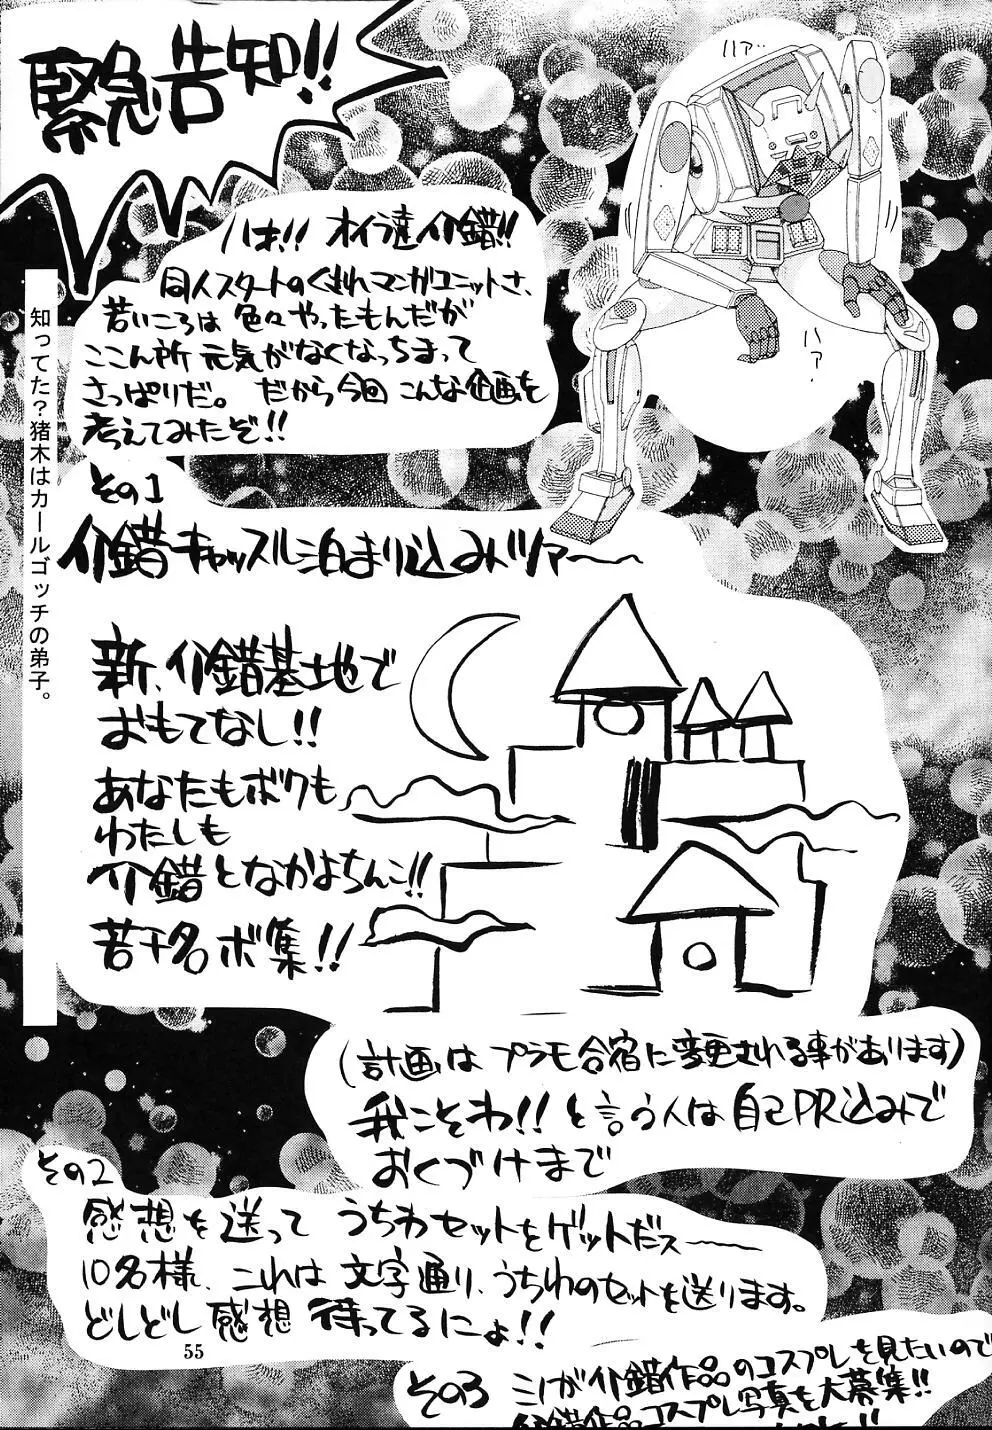 緊急告知!!
ハァ…
ハァ?
ハオ!! オイラ達介錯!!
同人スタートのくされマンガユニットさ、
若いころは 色々やったもんだが
ここん所 元気がなくなっちまって
さっぱりだ。 だから今回 こんな企画を
考えてみたぞ!!
知ってた?猪木はカールゴッチの弟子。
その1
介錯キャッスル泊まり込みバツアー〜
新、介錯基地で
おもてなし!!
あなたもボクも
わたしも
介錯となかよちんこ!!
若干名ボ集!!
(計画は プラモ合宿に変更される事があります)
我こそわ!! と言う人は自己PR込みで
おくづけまで
その2
感想を送って うちわセットをゲットだス〜
10名様、これは 文字通り、うちわのセットを送ります。
どしどし感想 待ってるにょ!!
55
その3
ミンが介錯作品のコスプレを見たいので
介錯作品コスプレ写真を大募集!!